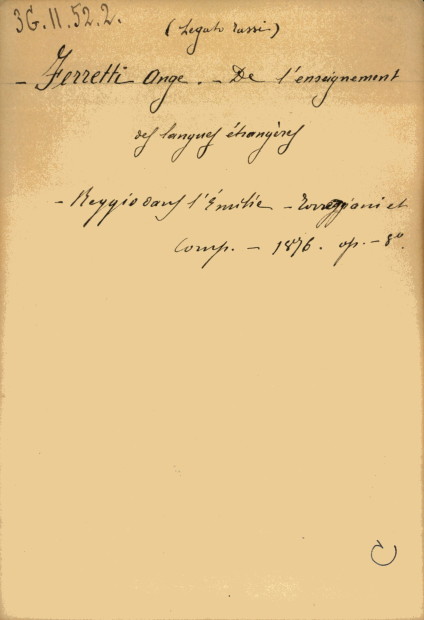 3G.II.52.2.
(Legato Rassi)
- Ferretti Ange. - De l'enseignement
des langues étrangères
- Reggio dans l'Émilie - Torreggiani et
Comp. - 1876. op. - 8°.